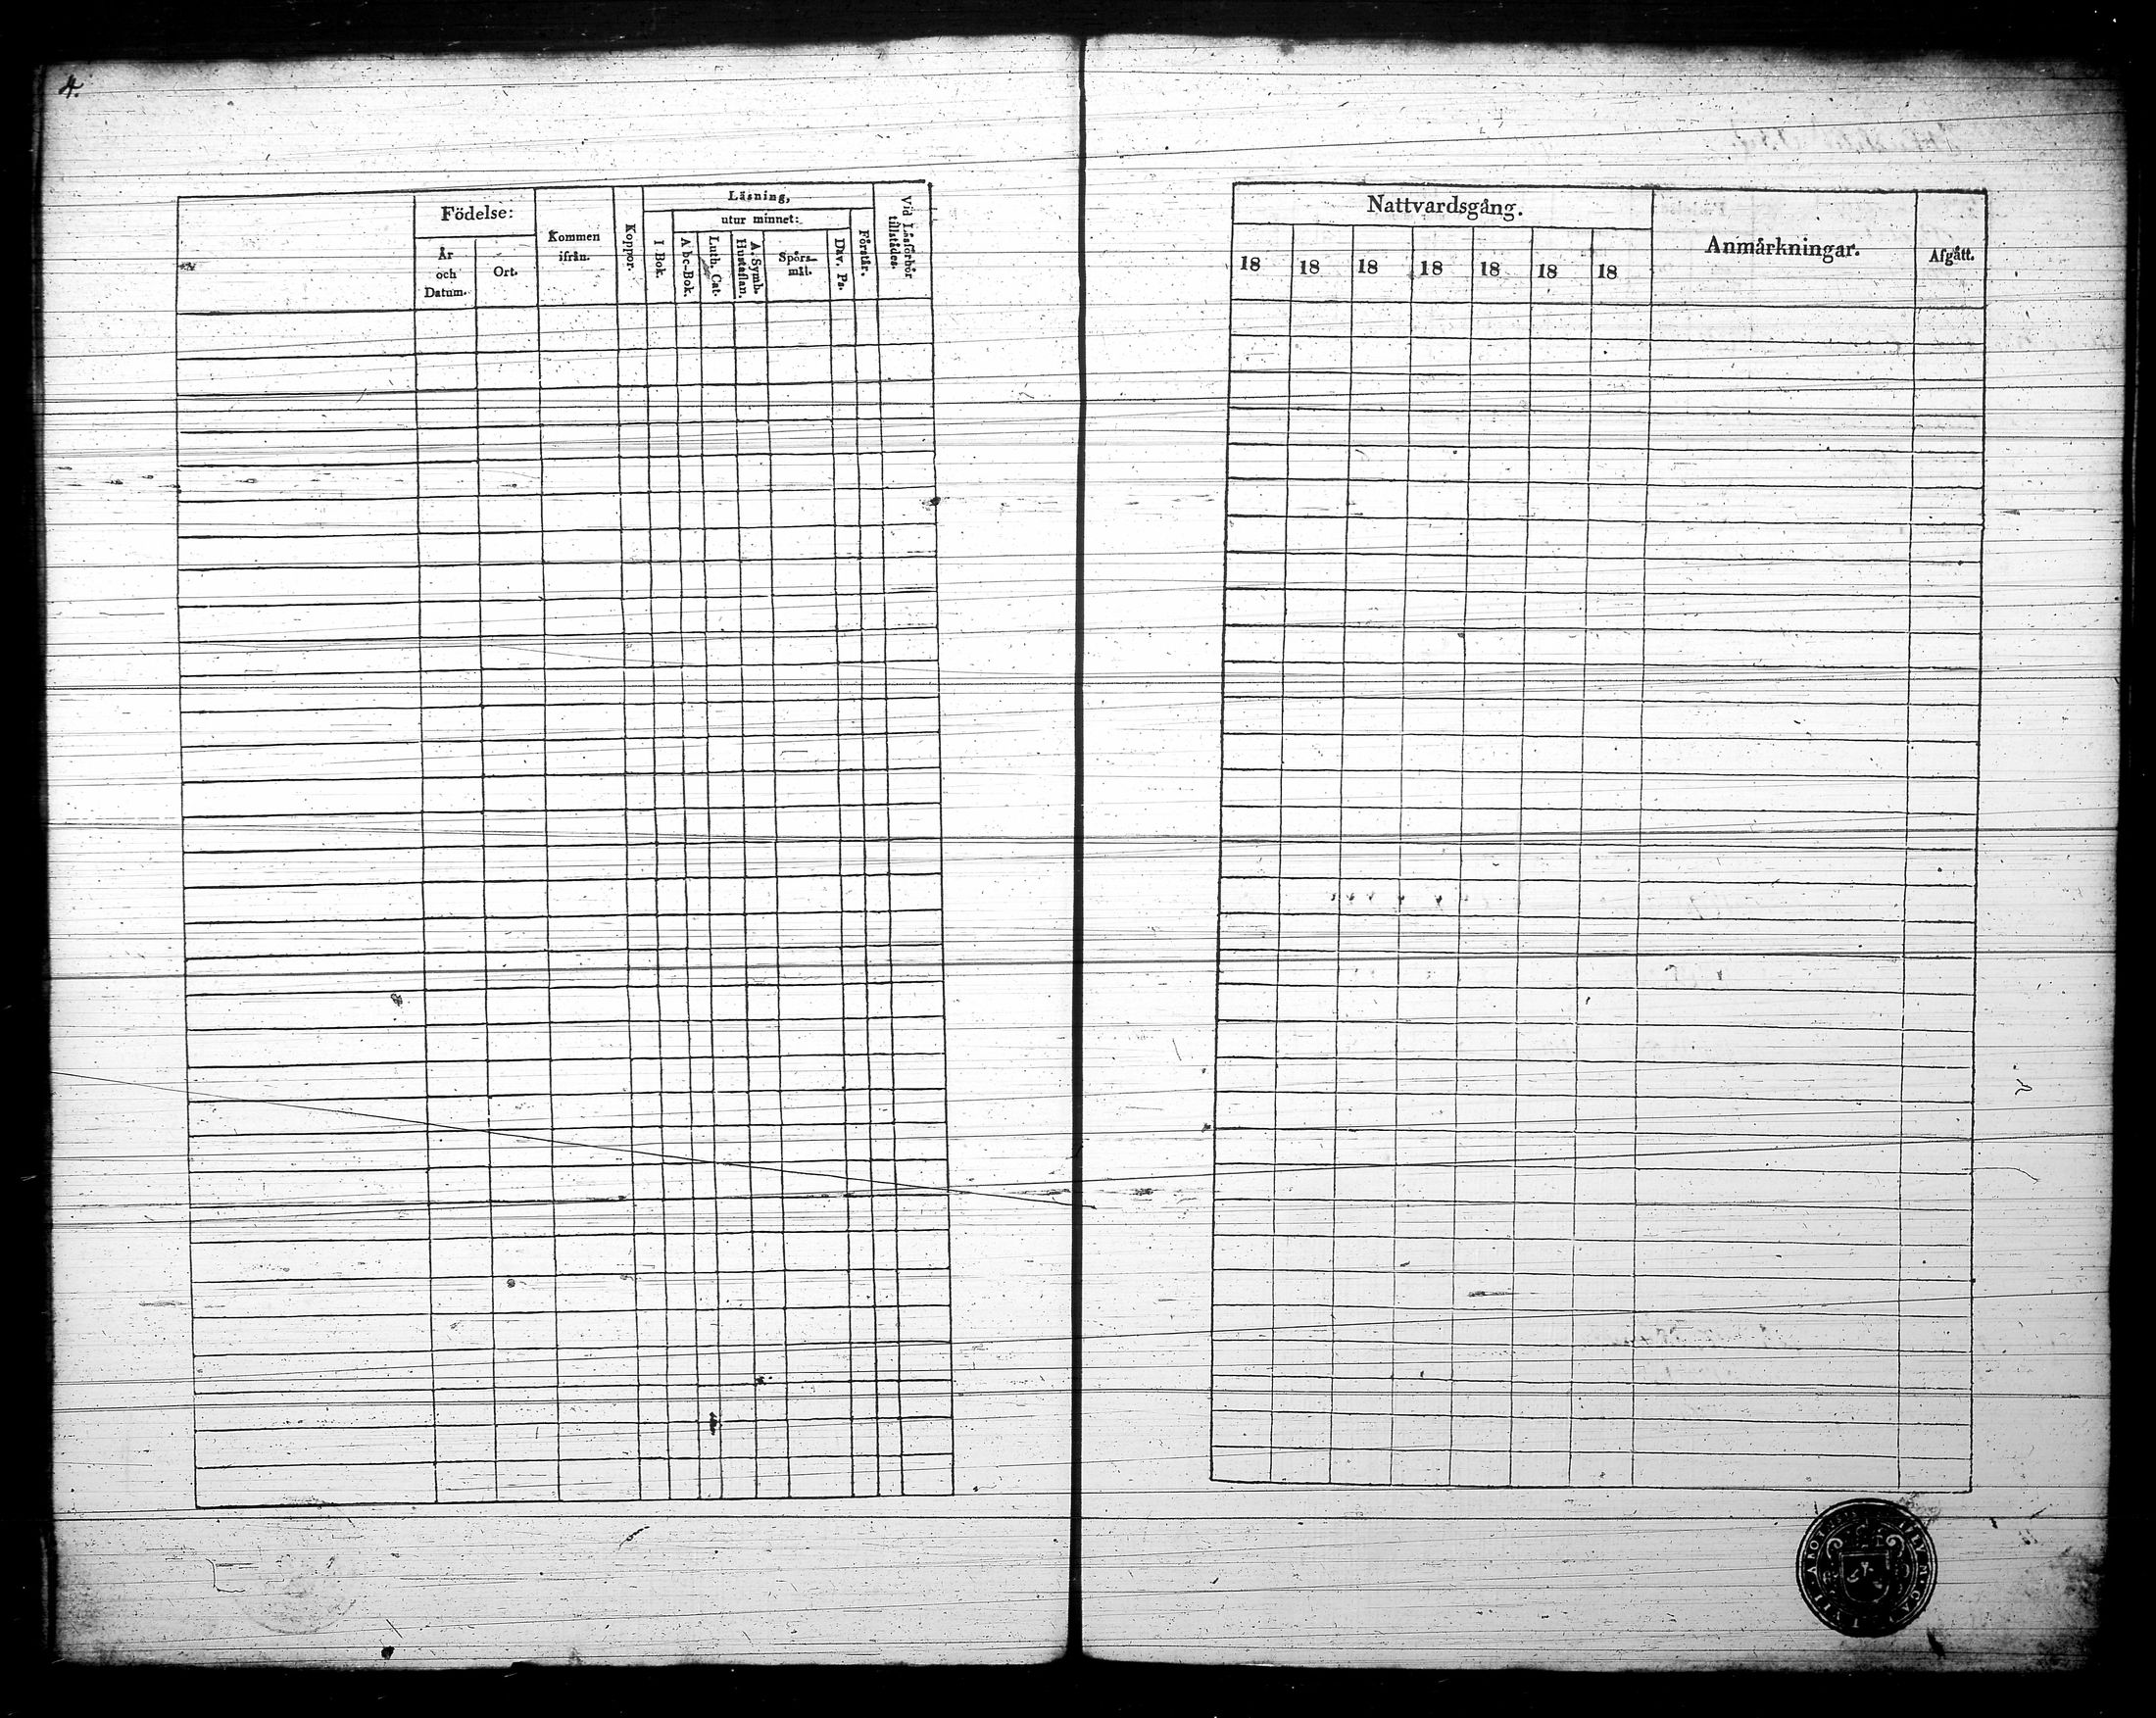 4.
Födelse:
År
och
Datum.
Ort.
Kommen
ifrån.
Koppor.
Läsning,
utur minnet:
I Bok.
Abc-Bok.
Luth. Cat.
A. Symb.
Hustaflan.
Spörs-
mål.
Dav. Ps.
Förstår.
Vid Läsförhör
tillstädes.
Nattvardsgång.
18 18 18 18 18 18 18
Anmärkningar.
Afgått.